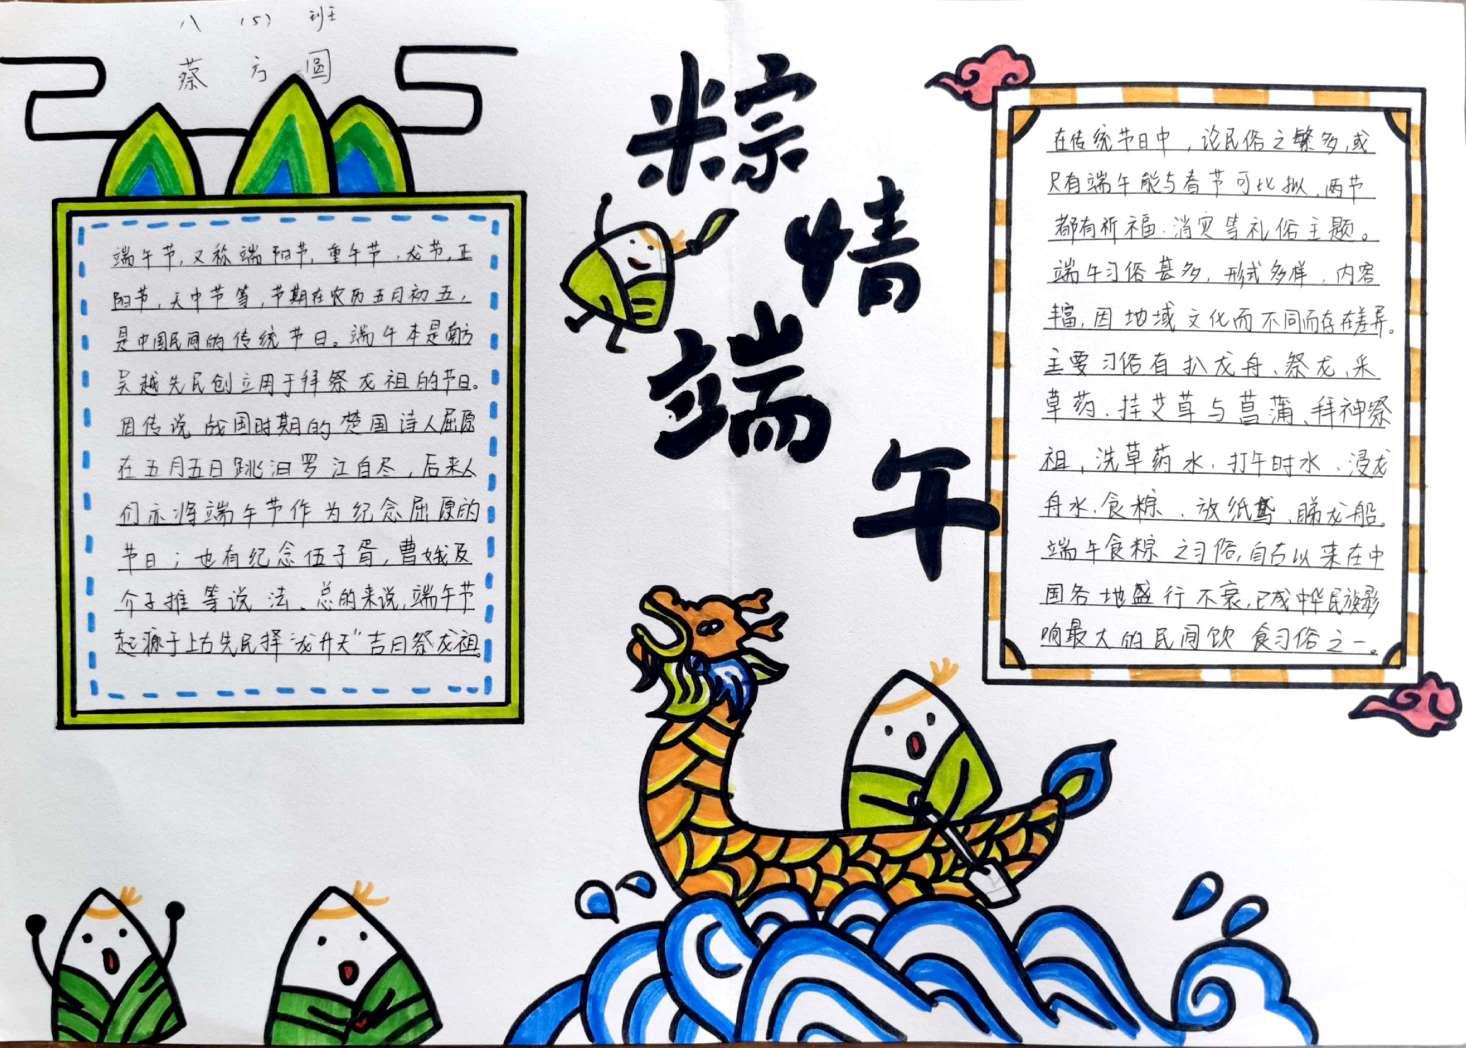 八（5）班
蔡方圆
粽情端午
端午节，又称端阳节，重午节，龙节，正
阳节，天中节等，节期在农历五月初五，
是中国民间的传统节日。端午本是南方
吴越先民创立用于拜祭龙祖的节日。
因传说战国时期的楚国诗人屈原
在五月五日跳汨罗江自尽，后来人
们亦将端午节作为纪念屈原的
节日；也有纪念伍子胥，曹娥及
介子推等说法、总的来说，端午节
起源于上古先民择“龙升天”吉日祭龙祖。
在传统节日中，论民俗之繁多，或
只有端午能与春节可比拟、两节
都有祈福、消灾等礼俗主题。
端午习俗甚多，形式多样、内容
丰富，因地域文化而不同而存在差异。
主要习俗有扒龙舟、祭龙、采
草药、挂艾草与菖蒲、拜神祭
祖，洗草药水、打午时水、浸龙
舟水、食粽、放纸鸢、睇龙船。
端午食粽之习俗，自古以来在中
国各地盛行不衰，已成中华民族影
响最大的民间饮食习俗之一。